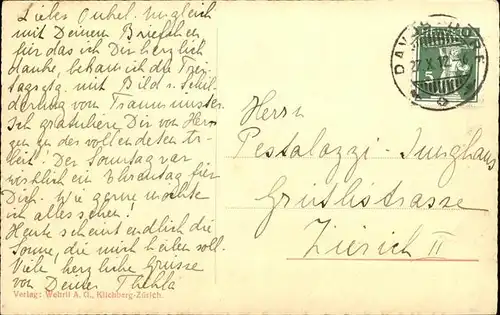 Lieber Onkel. Zugleich
mit Deinem Briefchen
für das ich Dir herzlich
danke, bekam ich die Frei-
tagsztg. mit Bild u. Schil-
derung vom Traummuster.
Ich gratuliere Dir von Her-
zen zu des vollendeten
Der Sonntag war
wirklich ein Ehrentag für
Dich. Wie gerne möchte
ich alles sehen!
Heute scheint endlich die
Sonne, die mich heilen soll.
Viele herzliche Grüsse
von Deiner Thekla
Verlag: Wehrli A. G., Kilchberg-Zürich.
DAVOS-DORF
27.X.12
5
Herrn
Pestalozzi-Junghans
Grütlistrasse
Zürich II